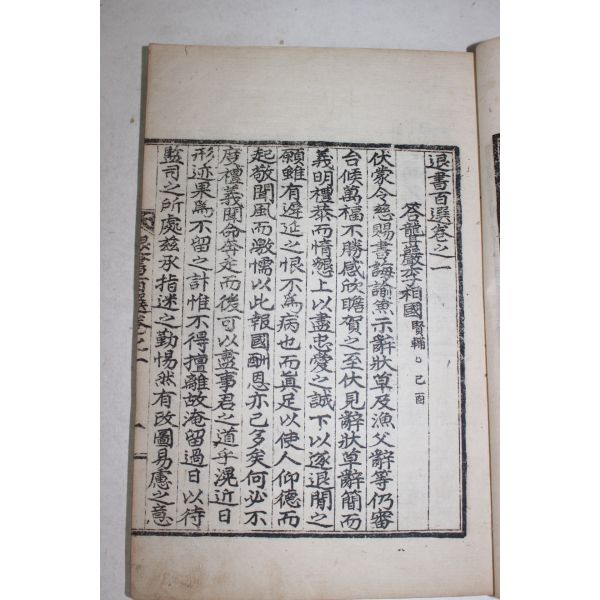 退書百選卷之一
答龍巖李相國賢輔○己酉
伏蒙令慈賜書誨諭兼示辭狀草及漁父辭等仍審
台候萬福不勝感欣瞻賀之至伏見辭狀草辭簡而
義明禮恭而情懇上以盡忠愛之誠下以遂退閒之
願雖有遲延之恨不為病也而眞足以使人仰德而
起敬聞風而激懦以此報國酬恩亦已多矣何必不
度禮義聞命奔走而後可以盡事君之道乎滉近日
形迹果為不留之計惟不得擅離故淹留過日以待
監司之所處玆承指迷之勤惕然有改圖易慮之意
退書百選卷之一
一